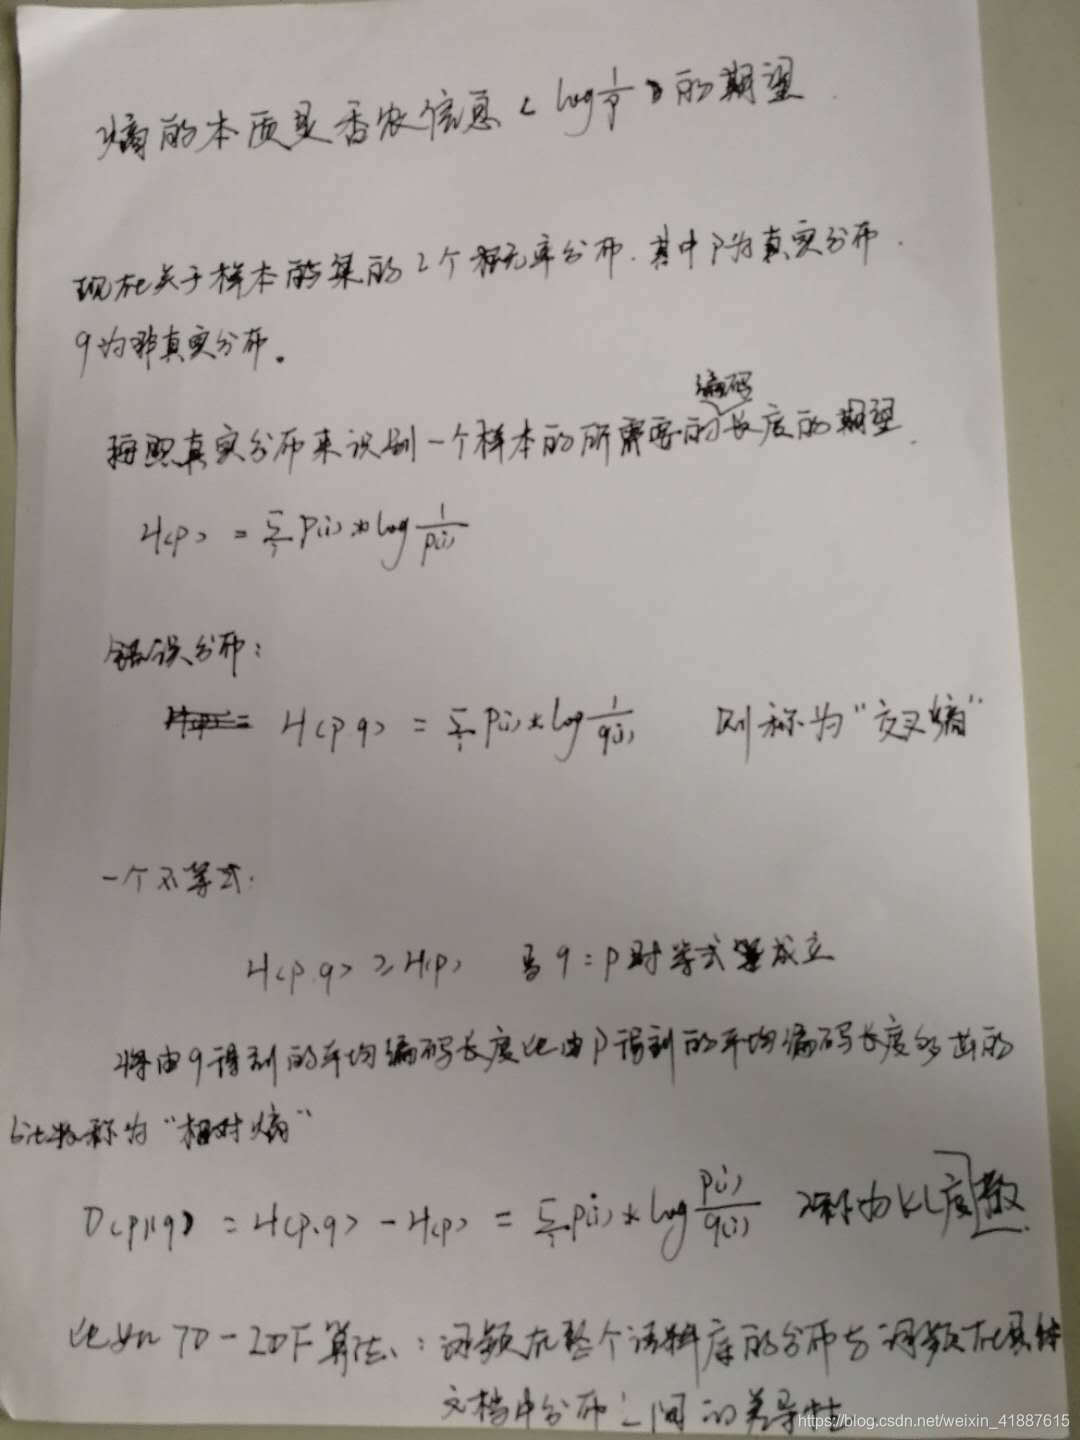 熵的本质是香农信息 ( log 1/p ) 的期望
现在关于样本的集的2个概率分布. 其中p为真实分布.
q为非真实分布。
按照真实分布来识别一个样本的所需要的编码长度的期望.
H(p) = Σ_i p(i) * log 1/p(i)
错误分布:
H(p q) = Σ_i p(i) * log 1/q(i) 则称为“交叉熵”
一个不等式:
H(p.q) ≥ H(p) 当q = p时等式成立
将由q得到的平均编码长度比由p得到的平均编码长度多出的
比特称为“相对熵”
D(p||q) = H(p.q) - H(p) = Σ_i p(i) * log p(i)/q(i) 又称为KL度散
比如 TD-IDF算法: 词频在整个语料库的分布与词频在具体
文档中分布之间的差异性
https://blog.csdn.net/weixin_41887615